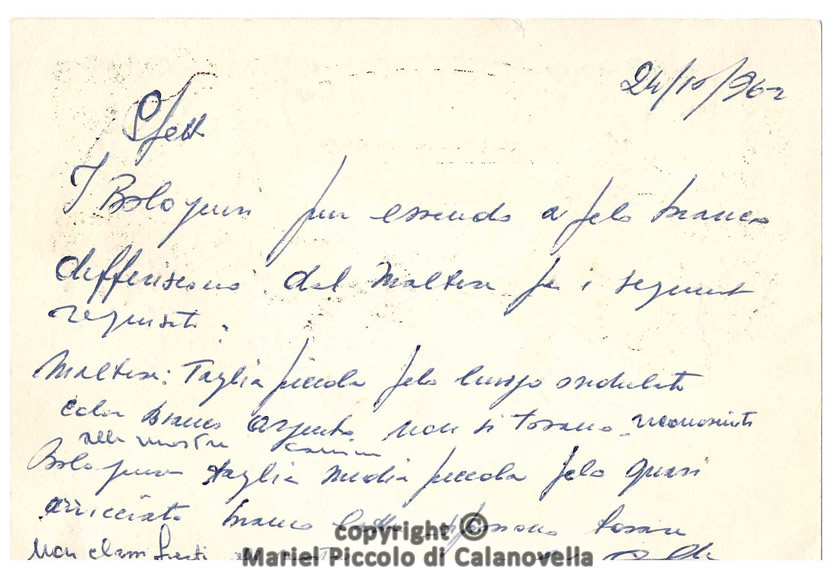 24/10/962
I Bolognesi pur essendo a pelo bianco
differiscono dal Maltese per i seguenti
requisiti:
Maltese: Taglia piccola pelo lungo ondulato
color bianco argento non si tosano riconosciuti
alle mostre canine
Bolognese taglia media piccola pelo quasi
arricciato bianco si possono tosare
non classificati
copyright ©
Mariel Piccolo di Calanovella